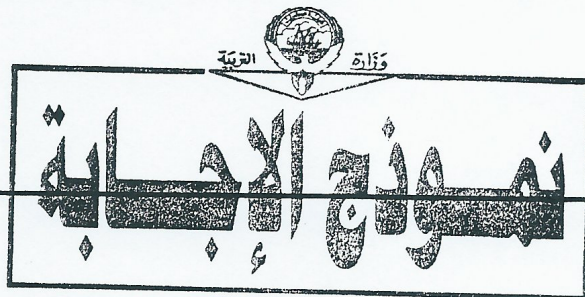 وَزَارَة التربيَة
نموذج الإجابة